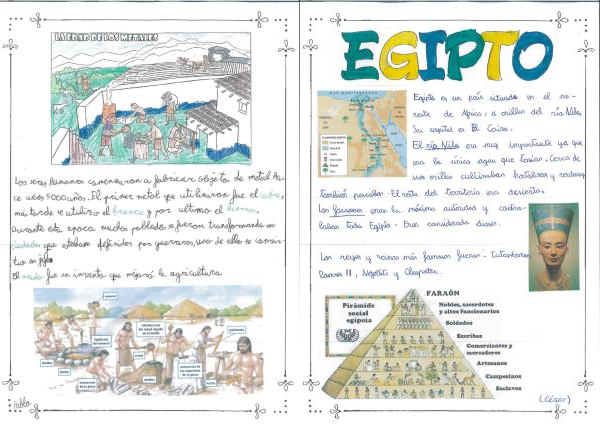 LA EDAD DE LOS METALES
Los seres humanos comenzaron a fabricar objeto de metal ha-
ce unos 5000 años. El primer metal que utilizaron fue el cobre,
más tarde se utilizo el bronce y por ultimo el hierro.
Durante esta época muchos poblados se fueron transformando en
ciudades que estaban definidos por guerreros, uno de ellos se conver-
tia en jefe.
El arado fue un invento que mejoró la agricultura
mineral
crisol
molde
horno
hacha
Pablo
EGIPTO
MAR MEDITERRÁNEO
Egipto es un país situado en el no-
reste de Africa, a orillas del río Nilo.
Su capital es El Cairo.
El río Nilo era muy importante ya que
era la única agua que tenían. Cerca de
sus orillas cultivaban hortalizas y cereales,
también pescaban. El resto del territorio era desierto.
Los faraones eran la máxima autoridad y contro-
laban todo Egipto. Eran considerados dioses.
Los reyes y reinas más famosos fueron: Tutankamon,
Ramses II, Nefertiti y Cleopatra.
Pirámide
social
egipcia
FARAÓN
Nobles, sacerdotes
y altos funcionarios
Soldados
Escribas
Comerciantes y
mercaderes
Artesanos
Campesinos
Esclavos
(César)